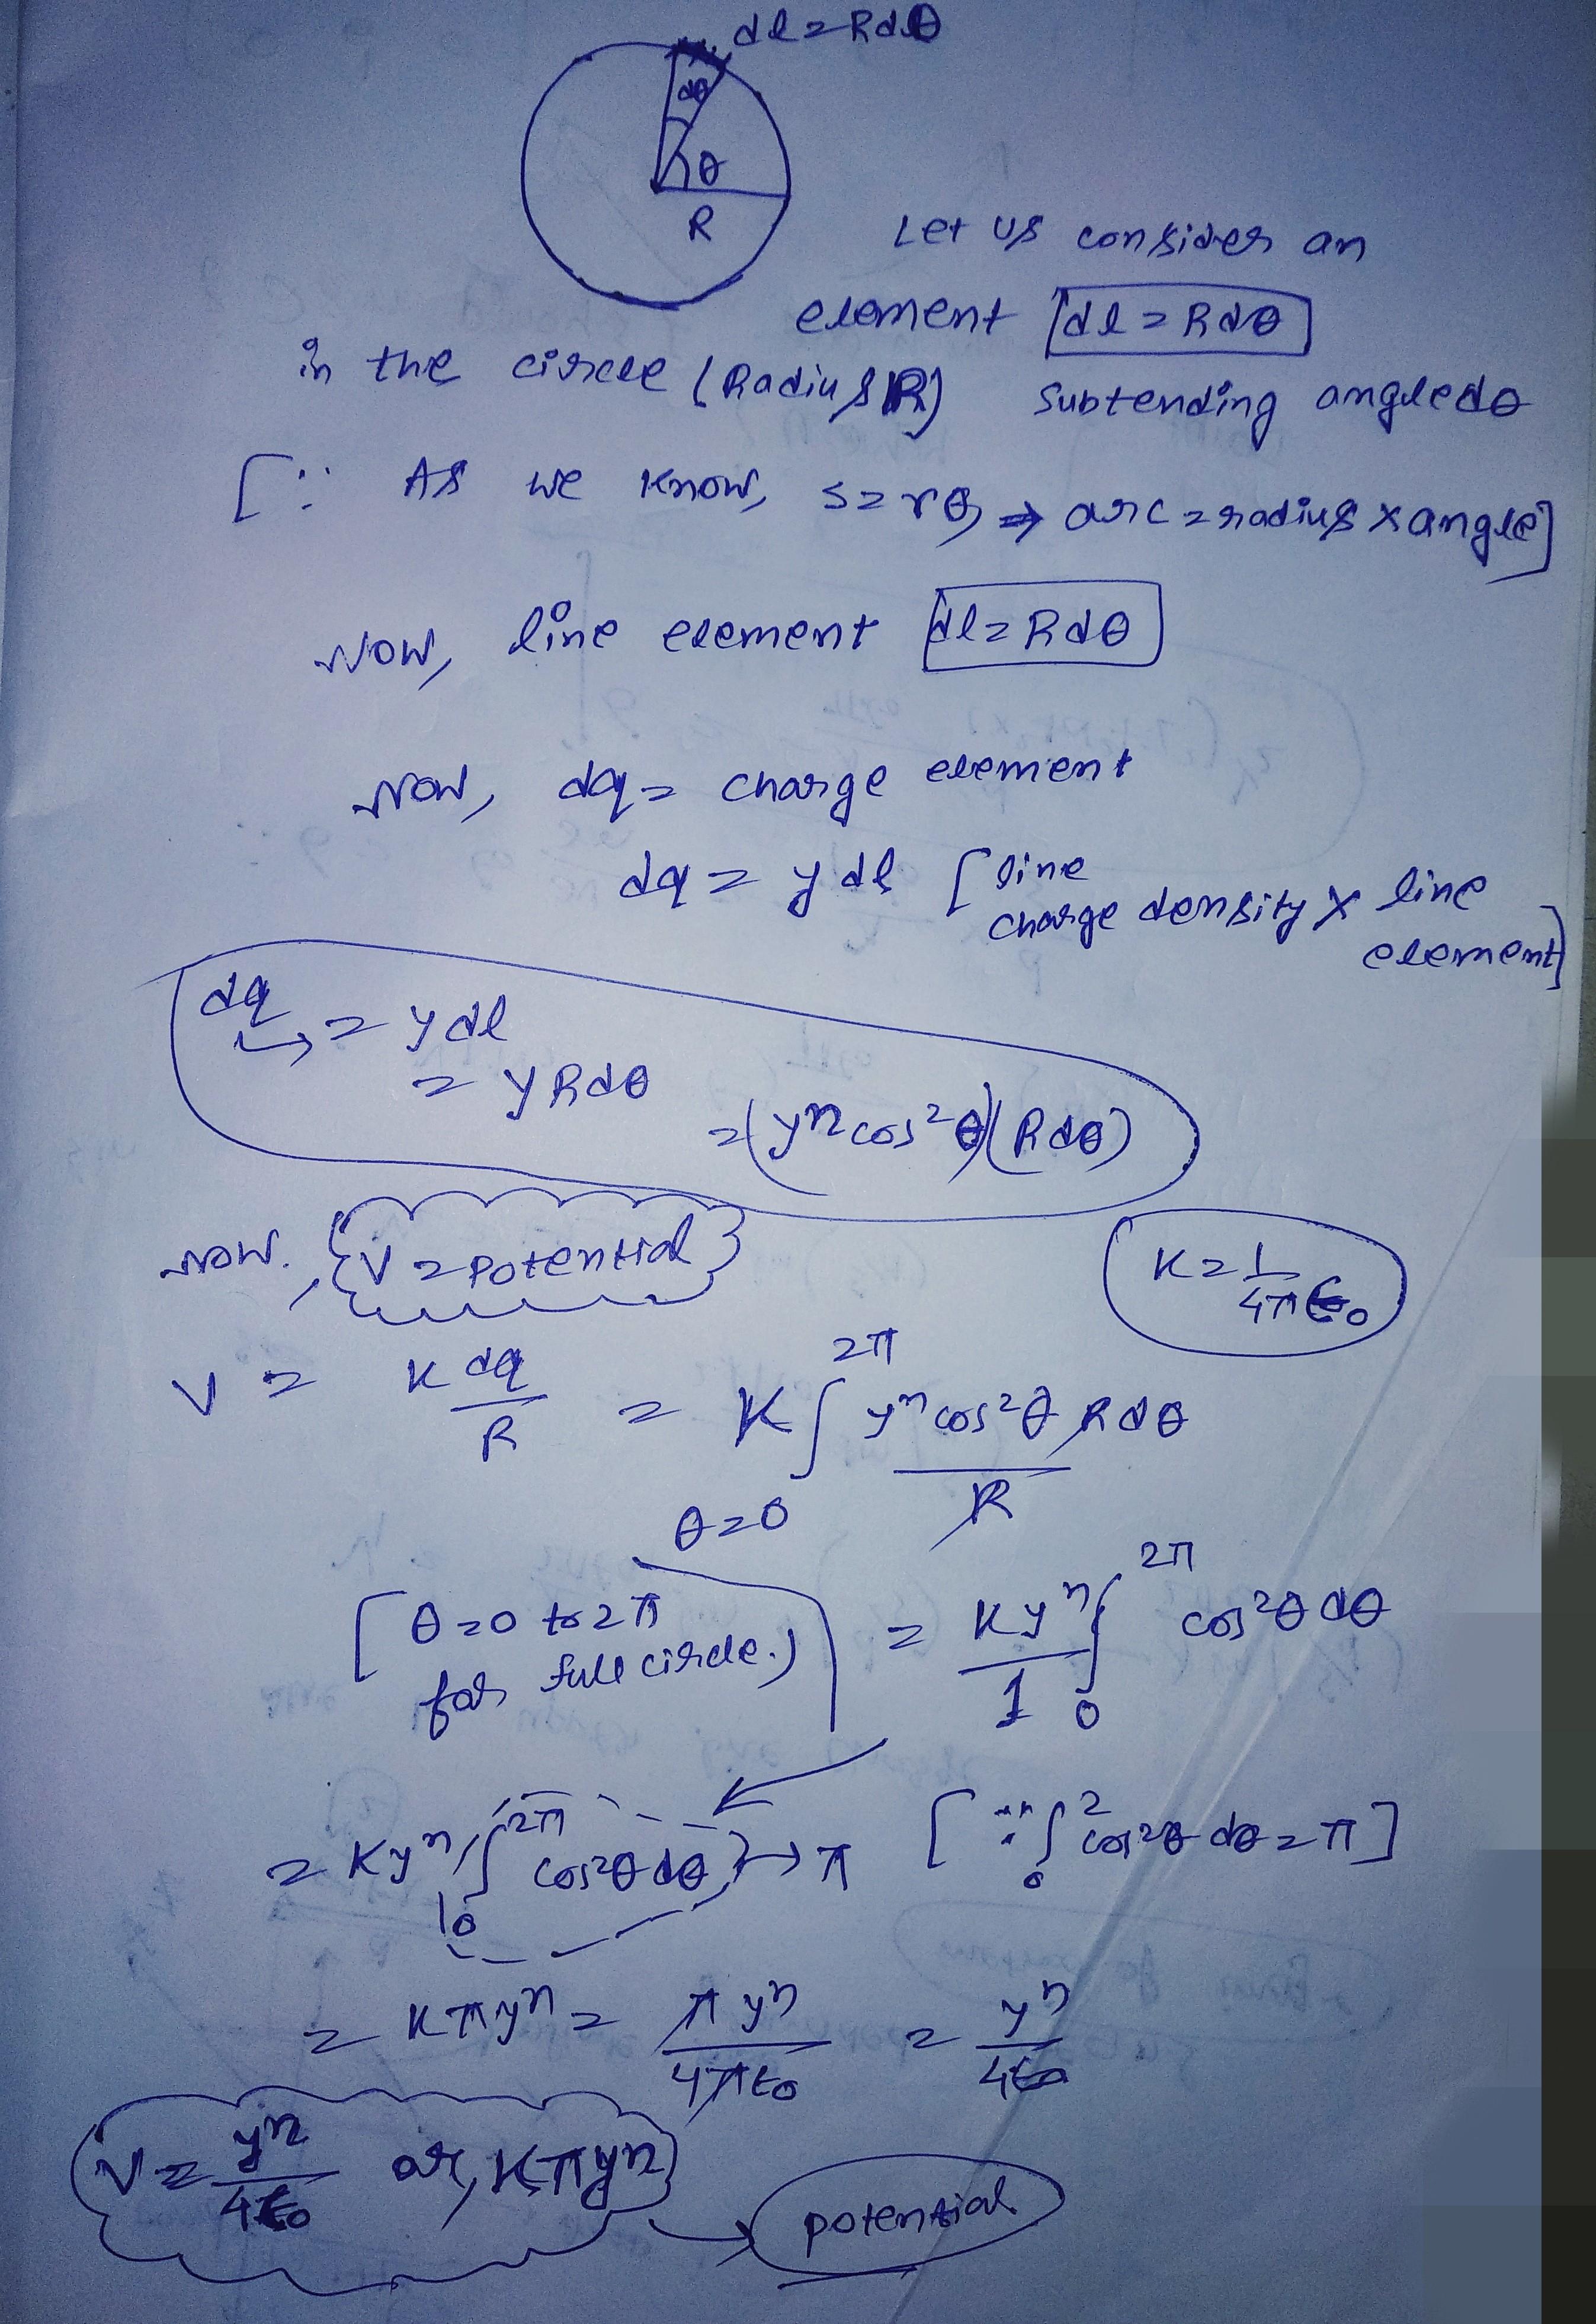 dl = Rdθ
dθ
θ
R
Let us consider an
element dl = Rdθ
in the circle (Radius R) subtending angle dθ
[∵ As we know, s = rθ, ⇒ arc = radius × angle]
Now, line element dl = Rdθ
Now, dq = charge element
dq = y dl [line charge density × line element]
dq = y dl
= y R dθ
= (yⁿ cos²θ)(R dθ)
Now, V = Potential
K = 1/4πϵ₀
V = K dq/R = K ∫_{θ=0}^{2π} yⁿ cos²θ R dθ / R
[θ = 0 to 2π
for full circle.)
= Kyⁿ/1 ∫_0^{2π} cos²θ dθ
= Kyⁿ ∫_0^{2π} cos²θ dθ → π [∵ ∫_0^2 cos²θ dθ = π]
= Kπyⁿ = πyⁿ/4πϵ₀ = yⁿ/4ϵ₀
V = yⁿ/4ϵ₀ or, Kπyⁿ
potential